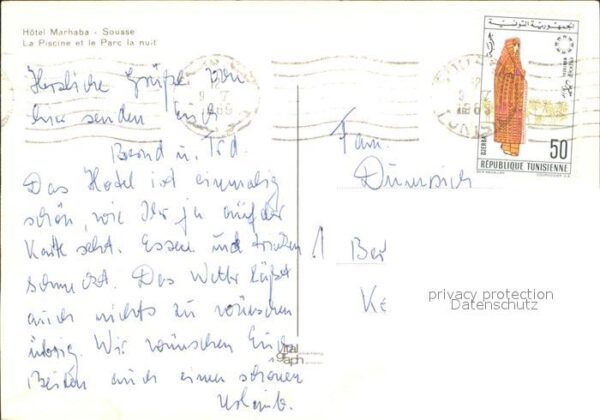 Hôtel Marhaba - Sousse
La Piscine et le Parc la nuit
Herzliche Grüße von
hier senden Euch
Bernd u.
Das Hotel ist einmalig
schön, wie Ihr ja auf der
Karte seht. Essen und trinken
ist. Das Wetter läßt
auch nichts zu wünschen
übrig. Wir wünschen Euch
Beiden auch einen schönen
Urlaub.
Fam.
1 Ber
Ke
privacy protection
Datenschutz
الجمهورية التونسية
DJERBA
50
REPUBLIQUE TUNISIENNE